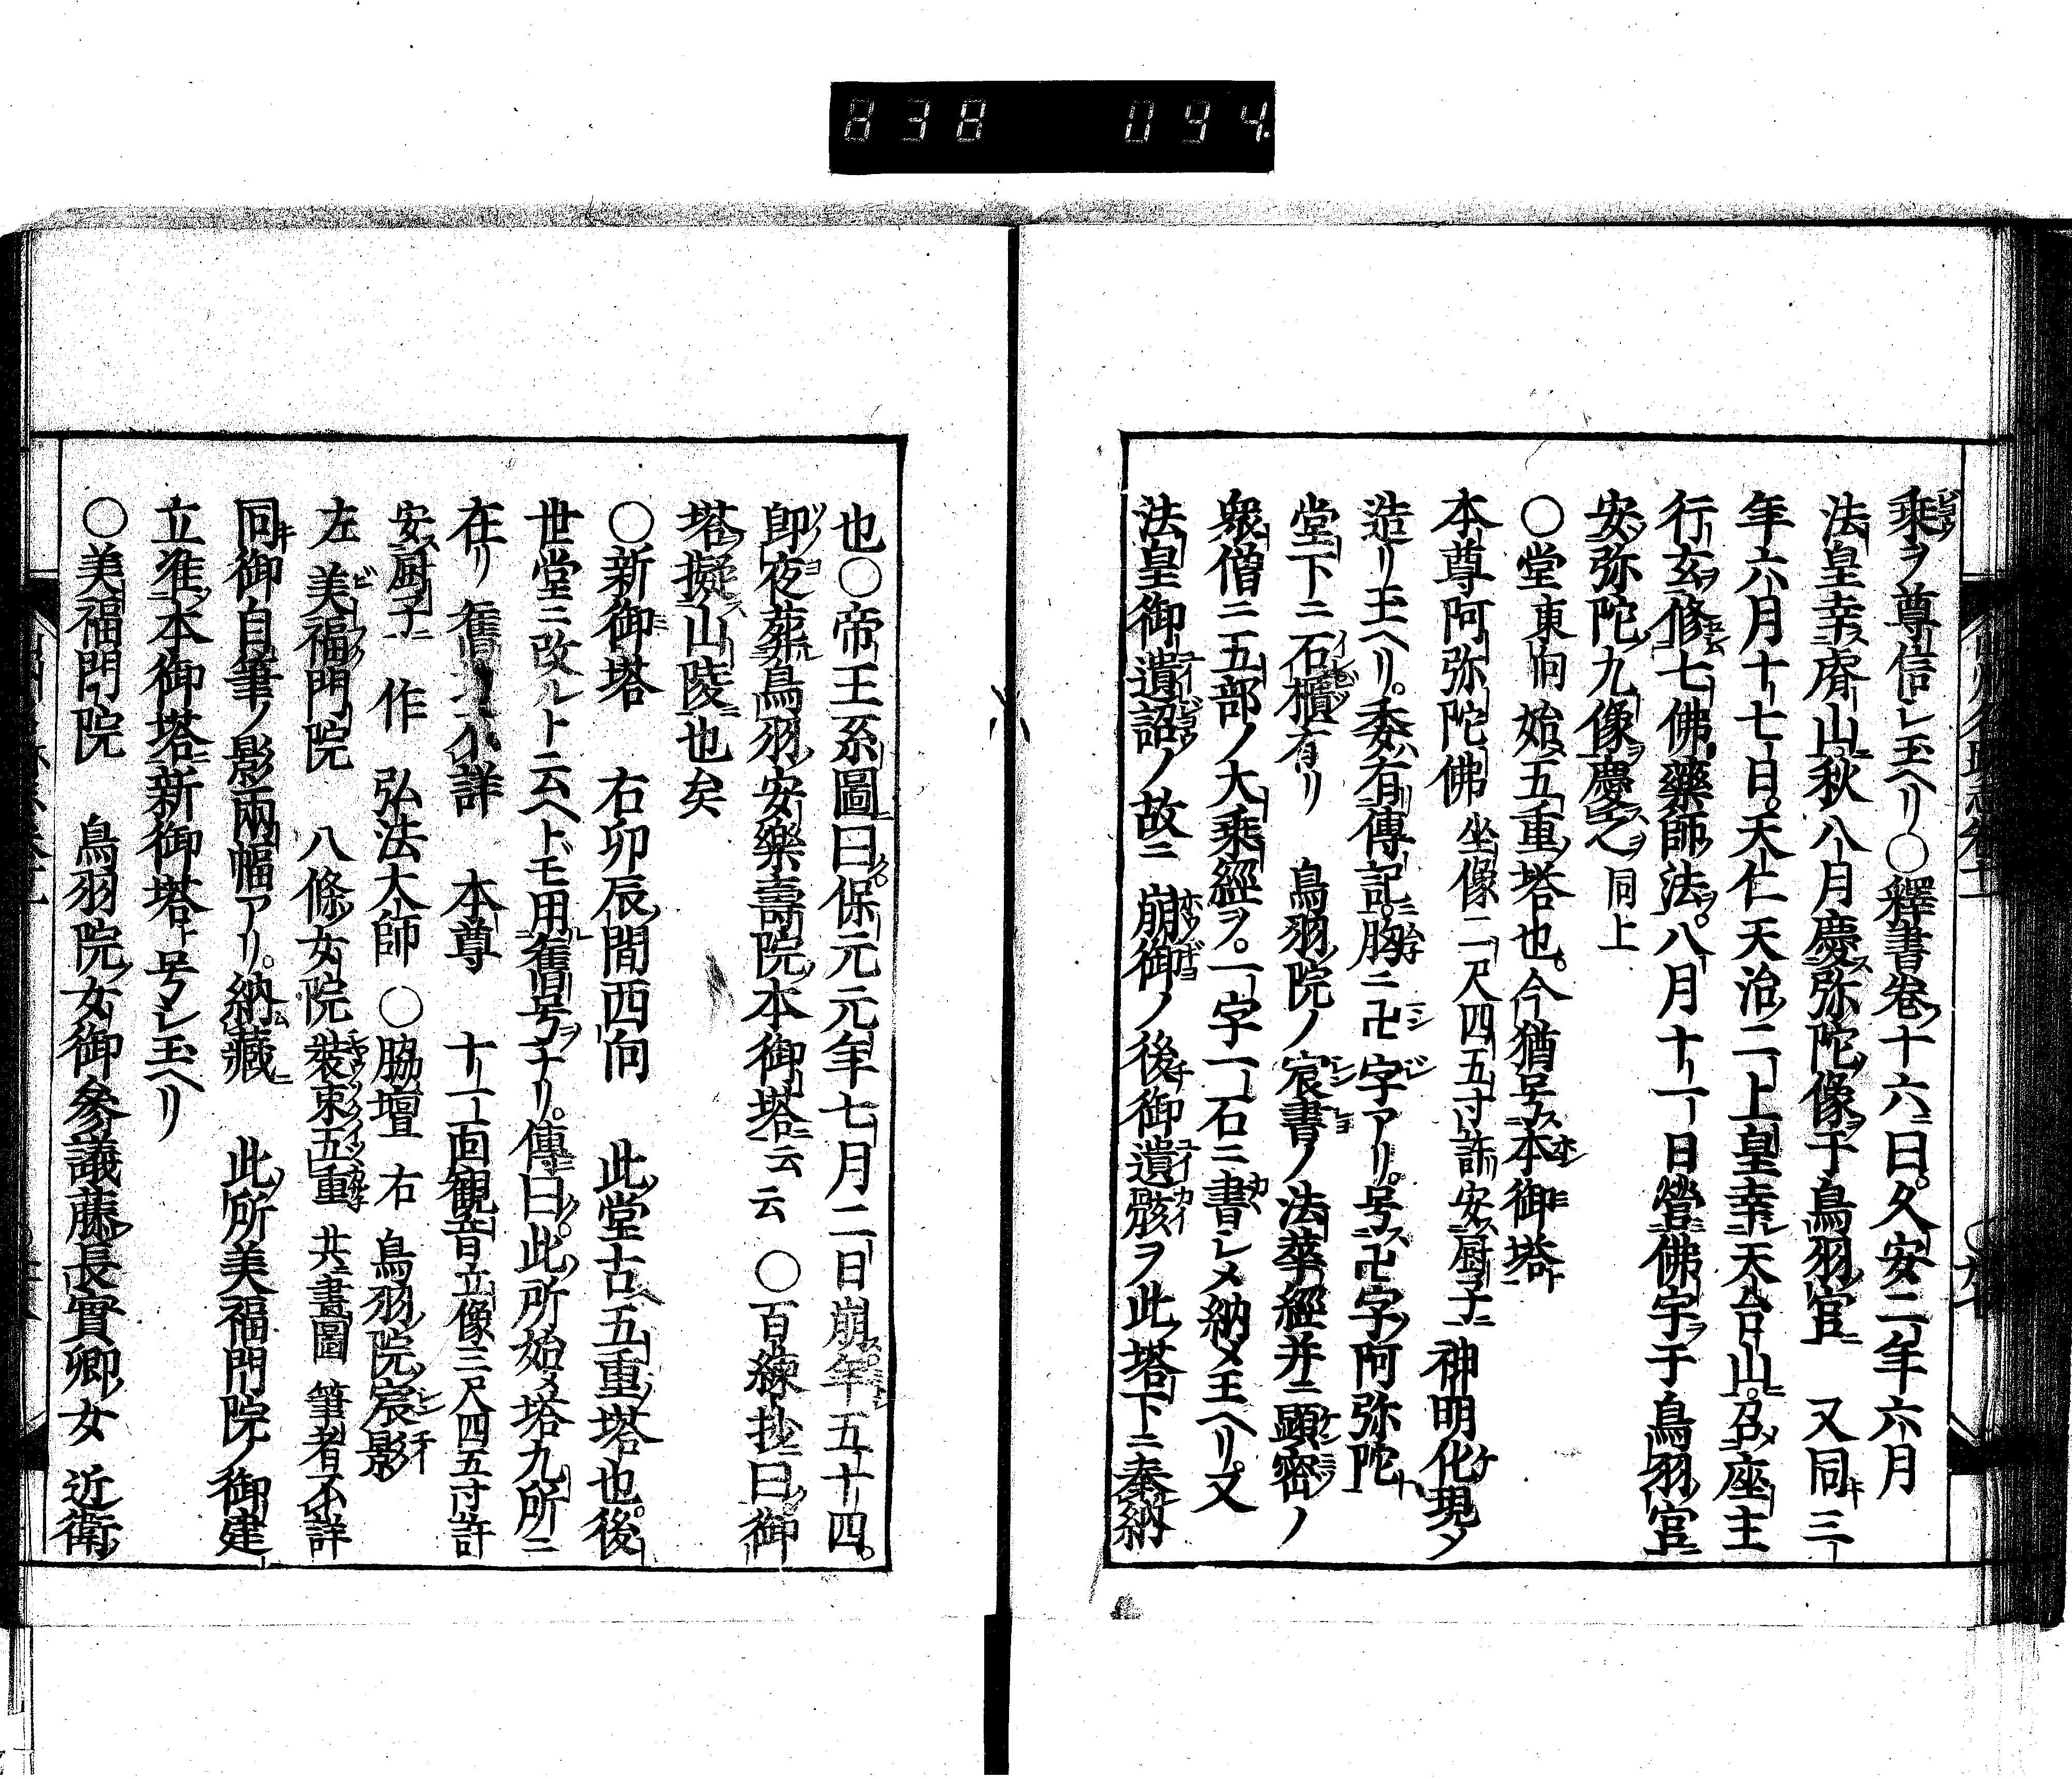 838 094
乗ヲ尊信シ玉ヘリ○釋書卷十六ニ曰久安二年六月
法皇幸ス睿山ニ秋八月慶ス弥陀ノ像ヲ于鳥羽ノ宮ニ 又同キ三
年六月十七日天仁天治ノ二上皇幸シ天台山ニ召メ座主
行玄ヲ修セシム七佛藥師ノ法ヲ八月十一日營佛宇ヲ于鳥羽ノ宮ニ
安シ弥陀ノ九像ヲ慶スヲ之 同上
○堂東向始ハ五重ノ塔也今猶号ス本御塔ト
本尊阿弥陀佛 坐像二尺四五寸許安ス厨子ニ 神明化現メ
造リ玉ヘリ委ハ有傳記ニ胸ニ卍字アリ号ス卍字ノ阿弥陀ト
堂下ニ石櫃有リ 鳥羽ノ院ノ宸書ノ法華經并ニ顕密ノ
衆僧ニ五部ノ大乗經ヲ一字一石ニ書シメ納メ玉ヘリ又
法皇御遺詔ノ故ニ 崩御ノ後チ御遺骸ヲ此塔下ニ奉納
也○帝王系圖ニ曰ク保元元年七月二日崩ス年五十四
即ノ夜葬ル鳥羽ノ安樂壽院ノ本御塔ニ云云 ○百練抄ニ曰御
塔ノ擬ス山陵ニ也矣
○新御塔 右卯辰ノ間西向 此堂古ヘ五重ノ塔也後
世堂ニ改ルト云ヘトモ用ル舊号ヲナリ傳ニ曰ク此所始メ塔九所ニ
在リ 舊不詳 本尊 十一面觀音 立像三尺四五寸許
安ス厨子ニ 作 弘法大師 ○脇壇 右 鳥羽ノ院ノ宸影
左 美福門院 八條ノ女院 裝束五重 共ニ畫圖 筆者不詳
同キ御自筆ノ影兩幅アリ納ム藏ニ 此ノ所美福門院ノ御建
立准シ本御塔ニ新御塔ト号シ玉ヘリ
○美福門院 鳥羽ノ院ノ女御參議藤ノ長實卿ノ女 近衛ノ